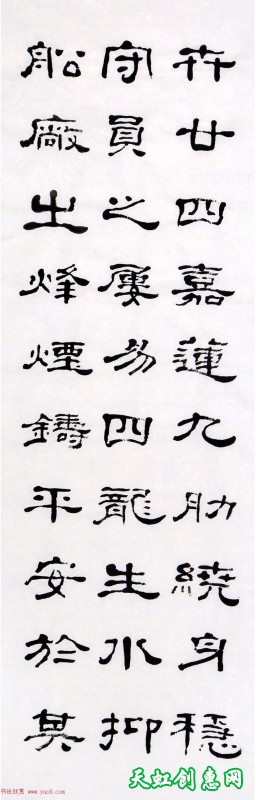 卉廿四嘉蓮九肋繞身穩
守員之屢易四龍生水抑
船廠出烽煙鑄平安於其
天虹创惠网
书法欣赏 www.yac8.com